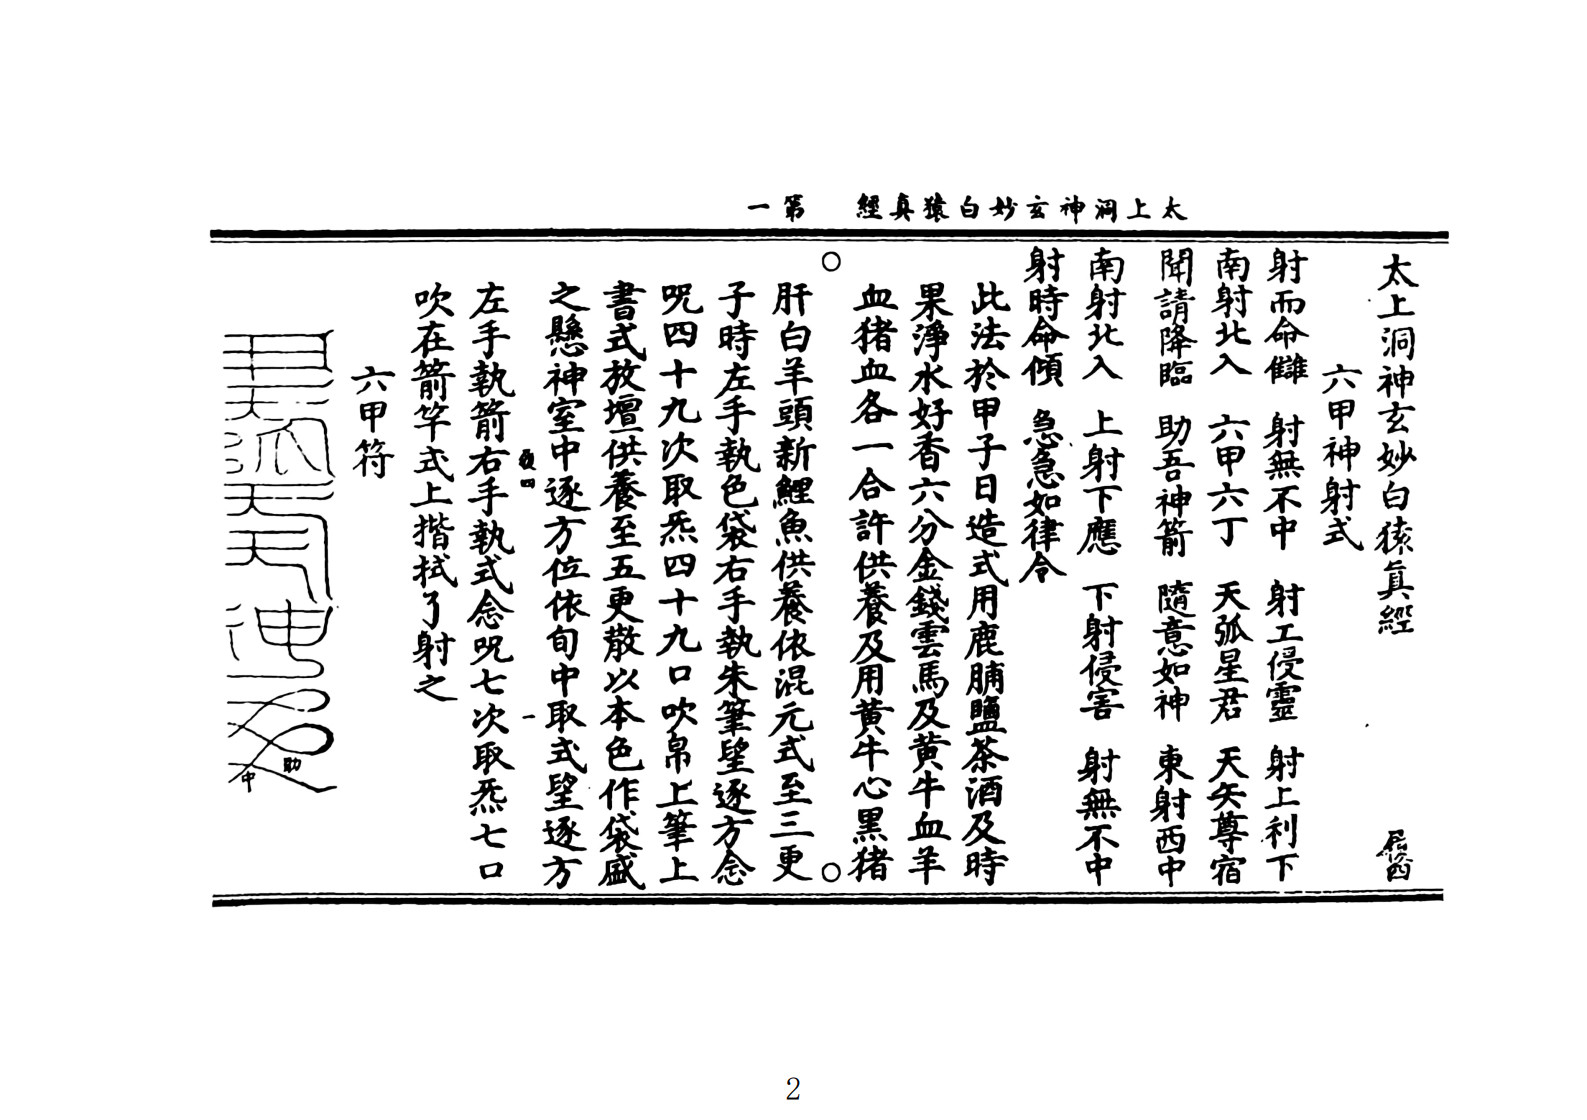 太上洞神玄妙白猿眞經 第一
太上洞神玄妙白猿眞經
六甲神射式
射而命讎 射無不中 射工侵靈 射上利下
南射北入 六甲六丁 天弧星君 天矢尊宿
聞請降臨 助吾神箭 隨意如神 東射西中
南射北入 上射下應 下射侵害 射無不中
射時命傾 急急如律令
此法於甲子日造式用鹿脯鹽茶酒及時
果淨水好香六分金錢雲馬及黃牛血羊
血猪血各一合許供養及用黃牛心黑猪
肝白羊頭新鯉魚供養依混元式至三更
子時左手執色袋右手執朱筆望逐方念
呪四十九次取炁四十九口吹帛上筆上
書式放壇供養至五更散以本色作袋盛
之懸神室中逐方位依旬中取式望逐方
左手執箭右手執式念呪七次取炁七口
吹在箭竿式上揩拭了射之
六甲符
助
中
2